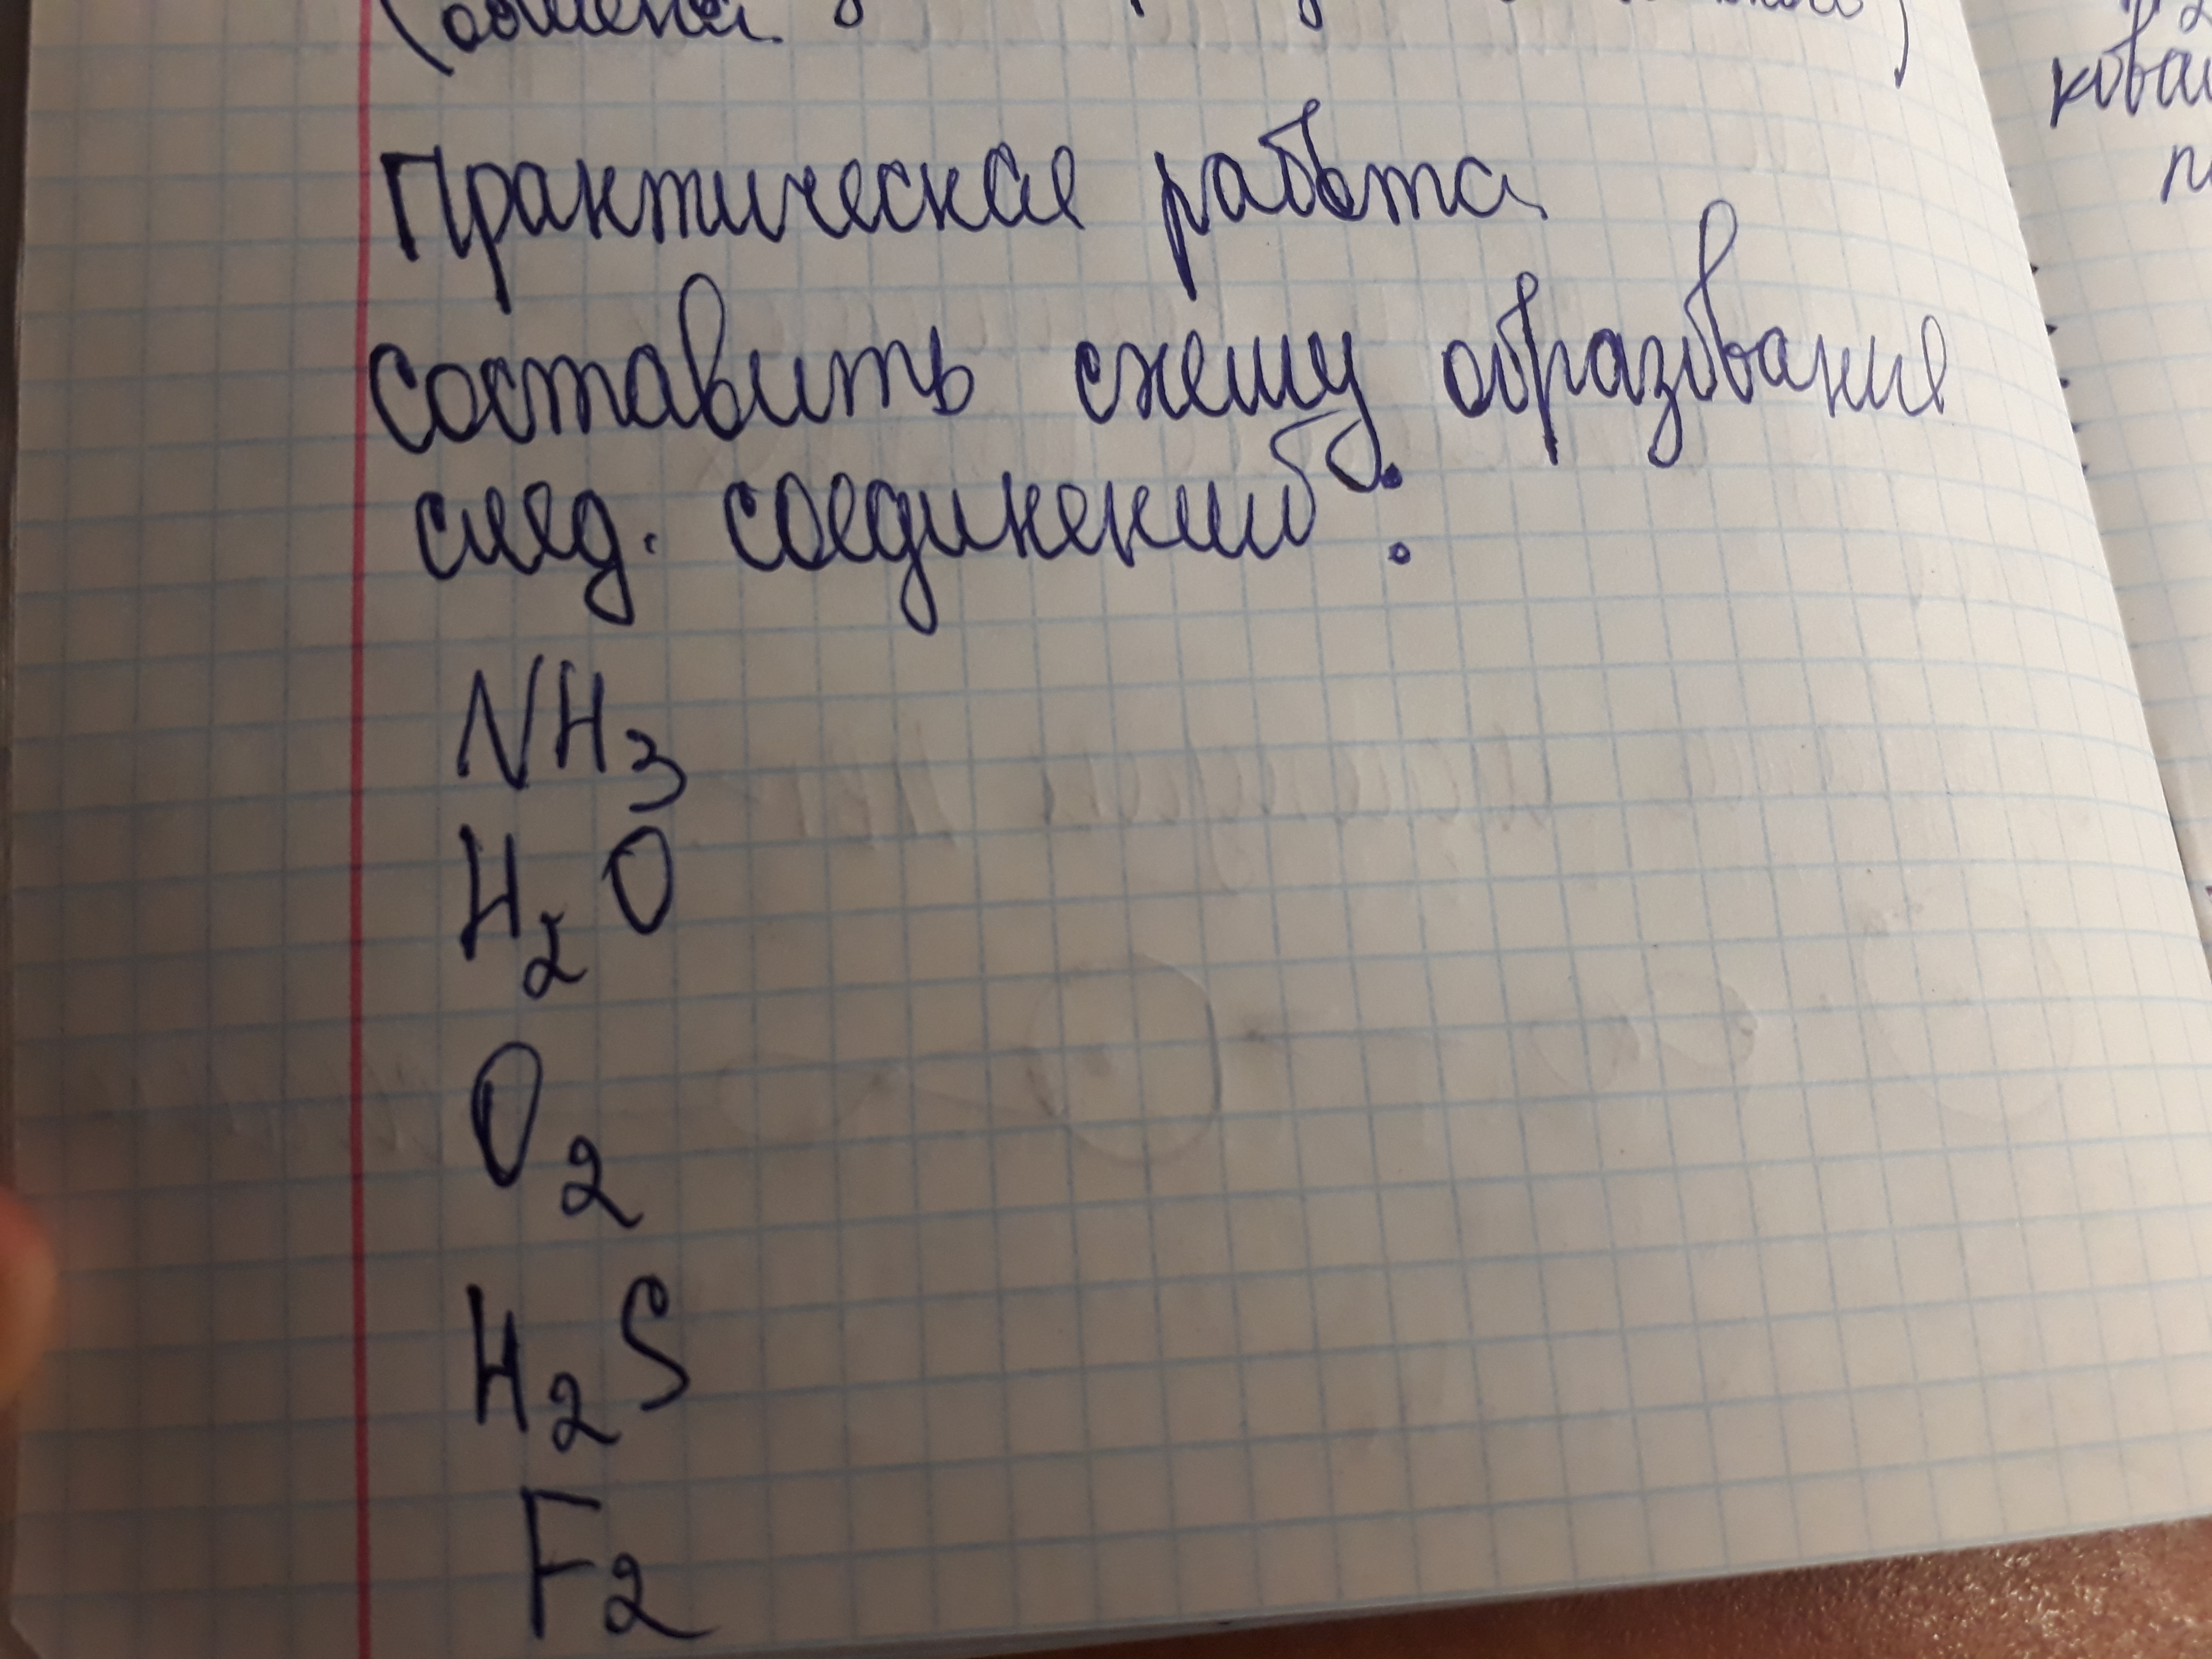 Практическая работа
составить схему образования
след. соединений:
NH3
H2O
O2
H2S
F2